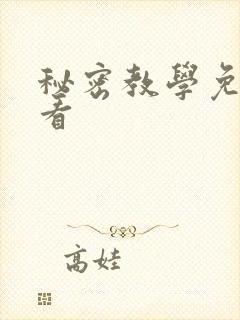 秘密教學免
看
高娃